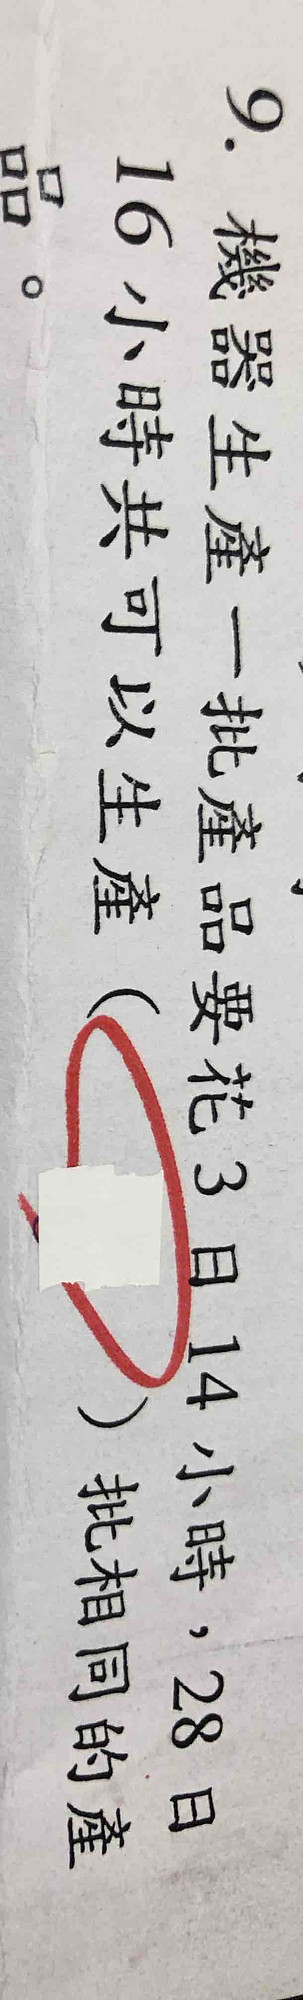 9. 機器生產一批產品要花3日14小時，28日
16小時共可以生產（ ）批相同的產
品。